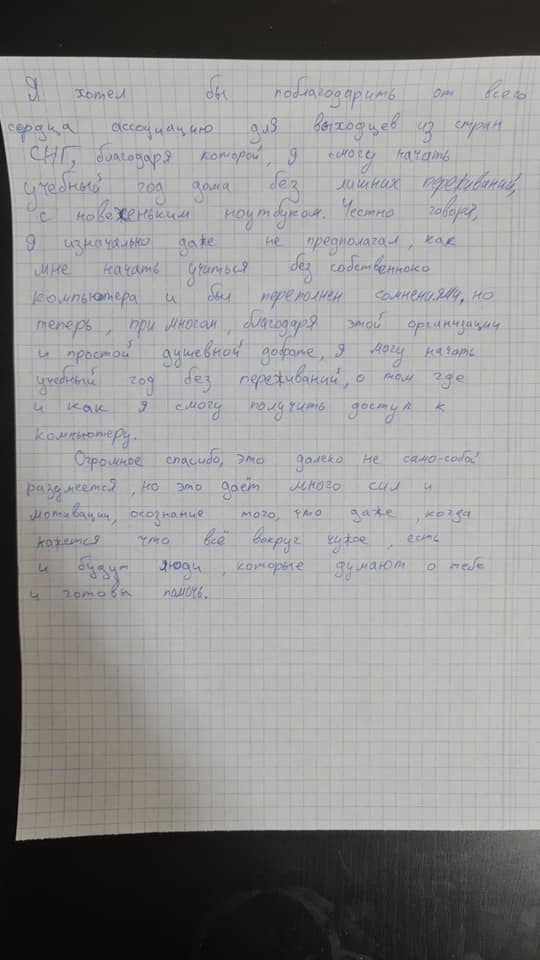 Я хотел бы поблагодарить от всего
сердца ассоциацию для выходцев из стран
СНГ, благодаря которой, я смогу начать
учебный год дома без лишних переживаний,
с новеженьким ноутбуком. Честно говоря,
я изначально даже не предполагал, как
мне начать учиться без собственноко
компьютера и был переполнен сомнениями, но
теперь, при многом, благодаря этой организации
и простой душевной добрате, я могу начать
учебный год без переживаний, о том где
и как я смогу получить доступ к
компьютеру.
Огромное спасибо, это далеко не само-собой
разумеется, но это даёт много сил и
мотивации, осознание того, что даже, когда
кажется что всё вокруг чужое, есть
и будут люди, которые думают о тебе
и готовы помочь.